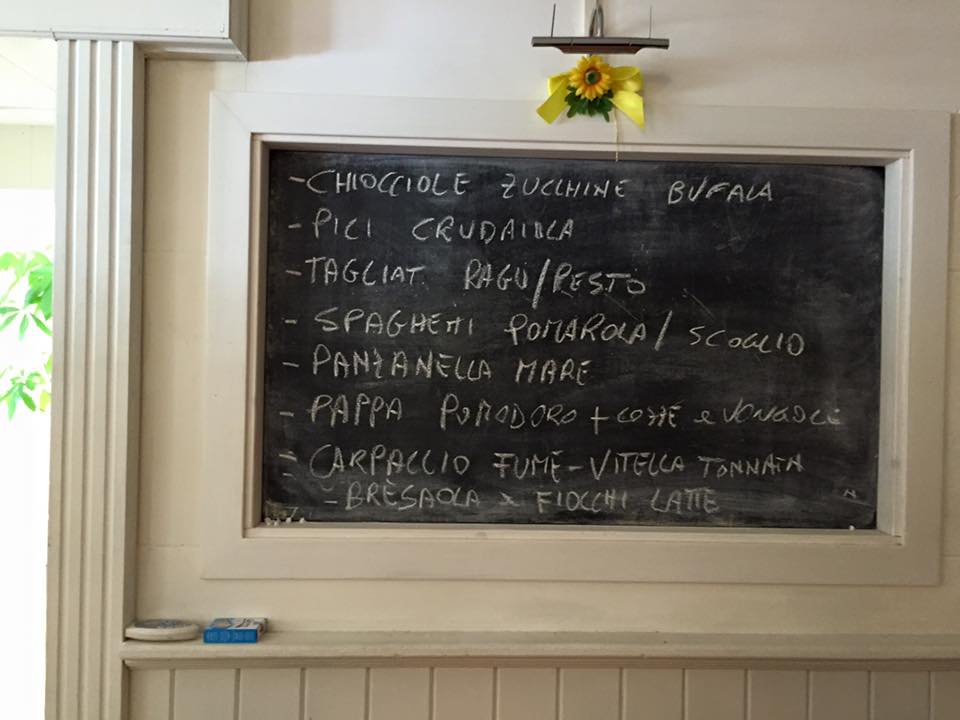 - CHIOCCIOLE ZUCCHINE BUFALA
- PICI CRUDAIOLA
- TAGLIAT. RAGÙ/PESTO
- SPAGHETTI POMAROLA/SCOGLIO
- PANZANELLA MARE
- PAPPA POMODORO + COZZE e VONGOLE
= CARPACCIO FUMÈ - VITELLA TONNATA
- BRÈSAOLA x FIOCCHI LATTE